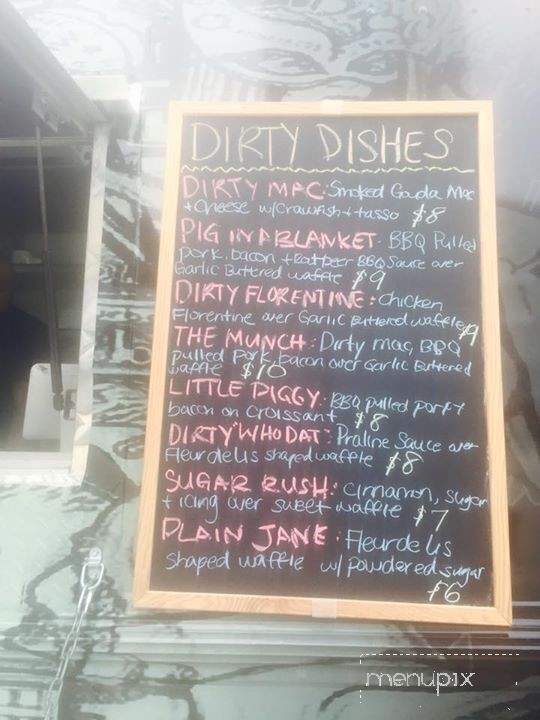 DIRTY DISHES
DIRTY MAC: Smoked Gouda Mac
+ Cheese w/ Crawfish + tasso $8
PIG IN A BLANKET: BBQ Pulled
pork, bacon + Rootbeer BBQ Sauce over
Garlic Buttered waffle $9
DIRTY FLORENTINE: Chicken
Florentine over Garlic Buttered waffle
THE MUNCH: Dirty mac, BBQ
pulled pork, bacon over Garlic Buttered
waffle $10
LITTLE PIGGY: BBQ pulled pork +
bacon on croissant $8
DIRTY "WHO DAT": Praline Sauce over
Fleurdelis shaped waffle $8
SUGAR RUSH: Cinnamon, sugar
+ icing over sweet waffle $7
PLAIN JANE: Fleurdelis
shaped waffle w/ powdered sugar
$6
menupix